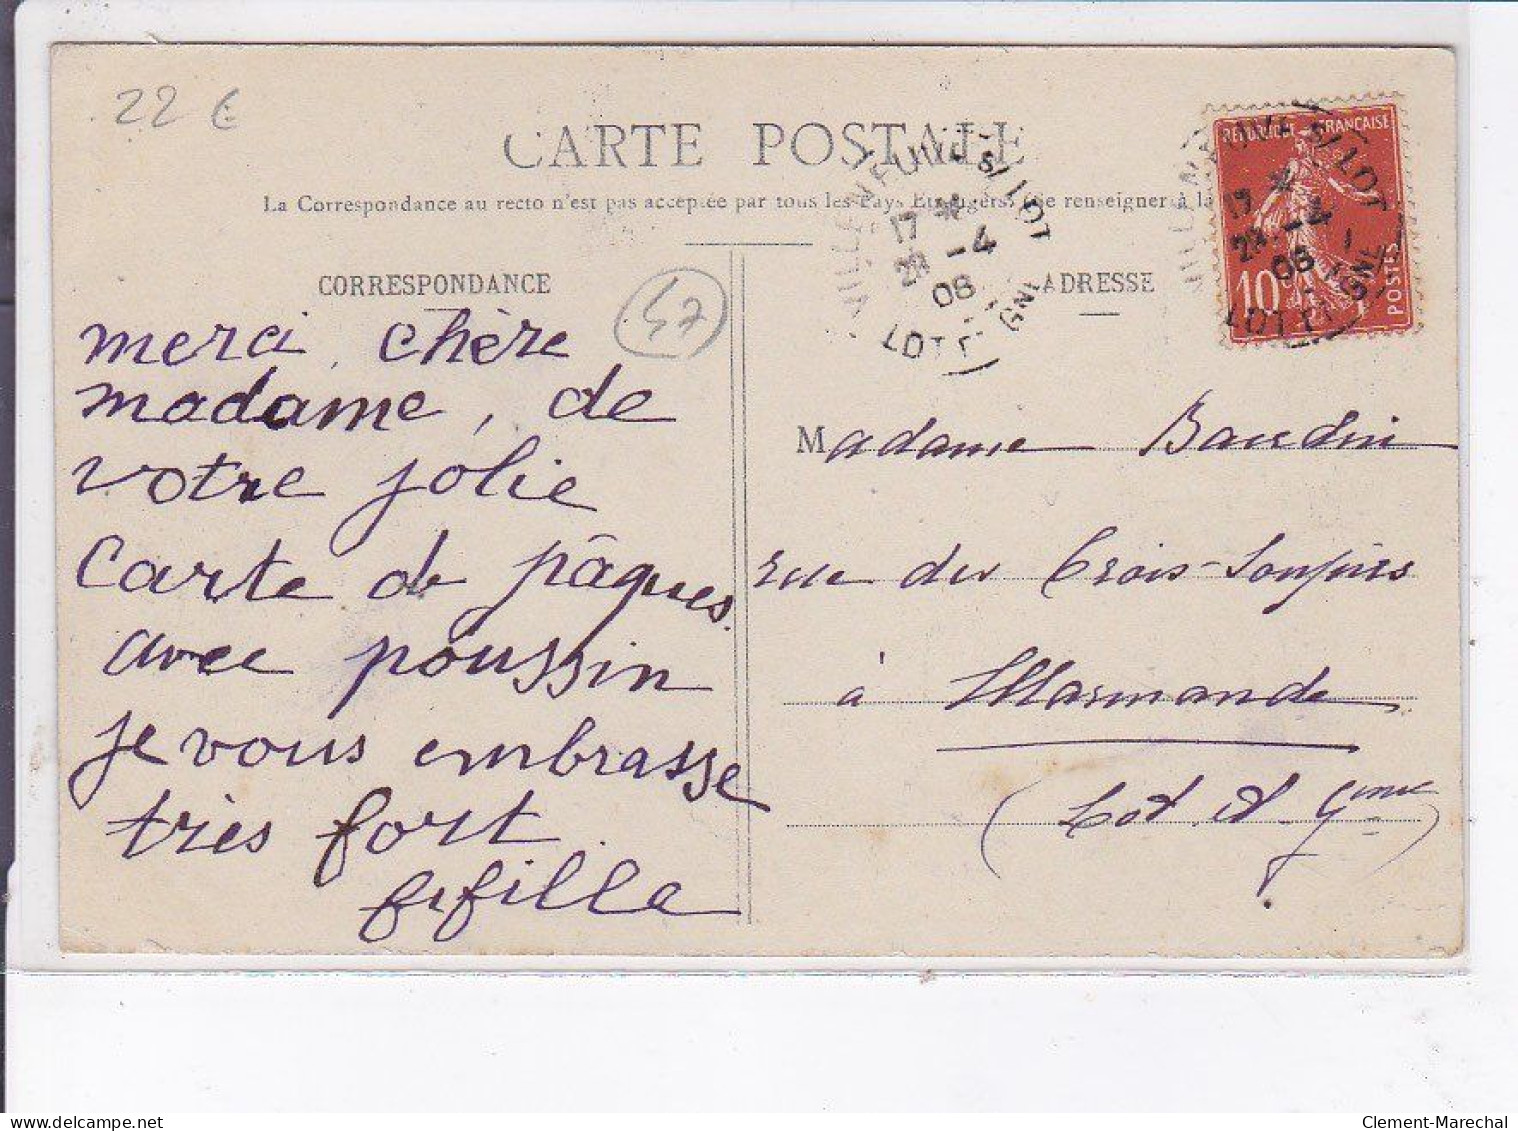 22 €
CARTE POSTALE
La Correspondance au recto n'est pas acceptée par tous les Pays Etrangers. Se renseigner à la
CORRESPONDANCE
47
merci, chère
madame, de
votre jolie
carte de pâques
avec poussin
je vous embrasse
très fort
fifille
VILLENEUVE-S/LOT
17 *
28 -4
08
LOT-ET-GNE
RÉPUBLIQUE FRANÇAISE
10c
POSTES
VILLENEUVE-S/LOT
17 *
28 -4
08
LOT-ET-GNE
ADRESSE
Madame Baudin
rue des Trois-Conjuins
à Marmande
(Lot et Gnne)
delcampe.net
Clement-Marechal